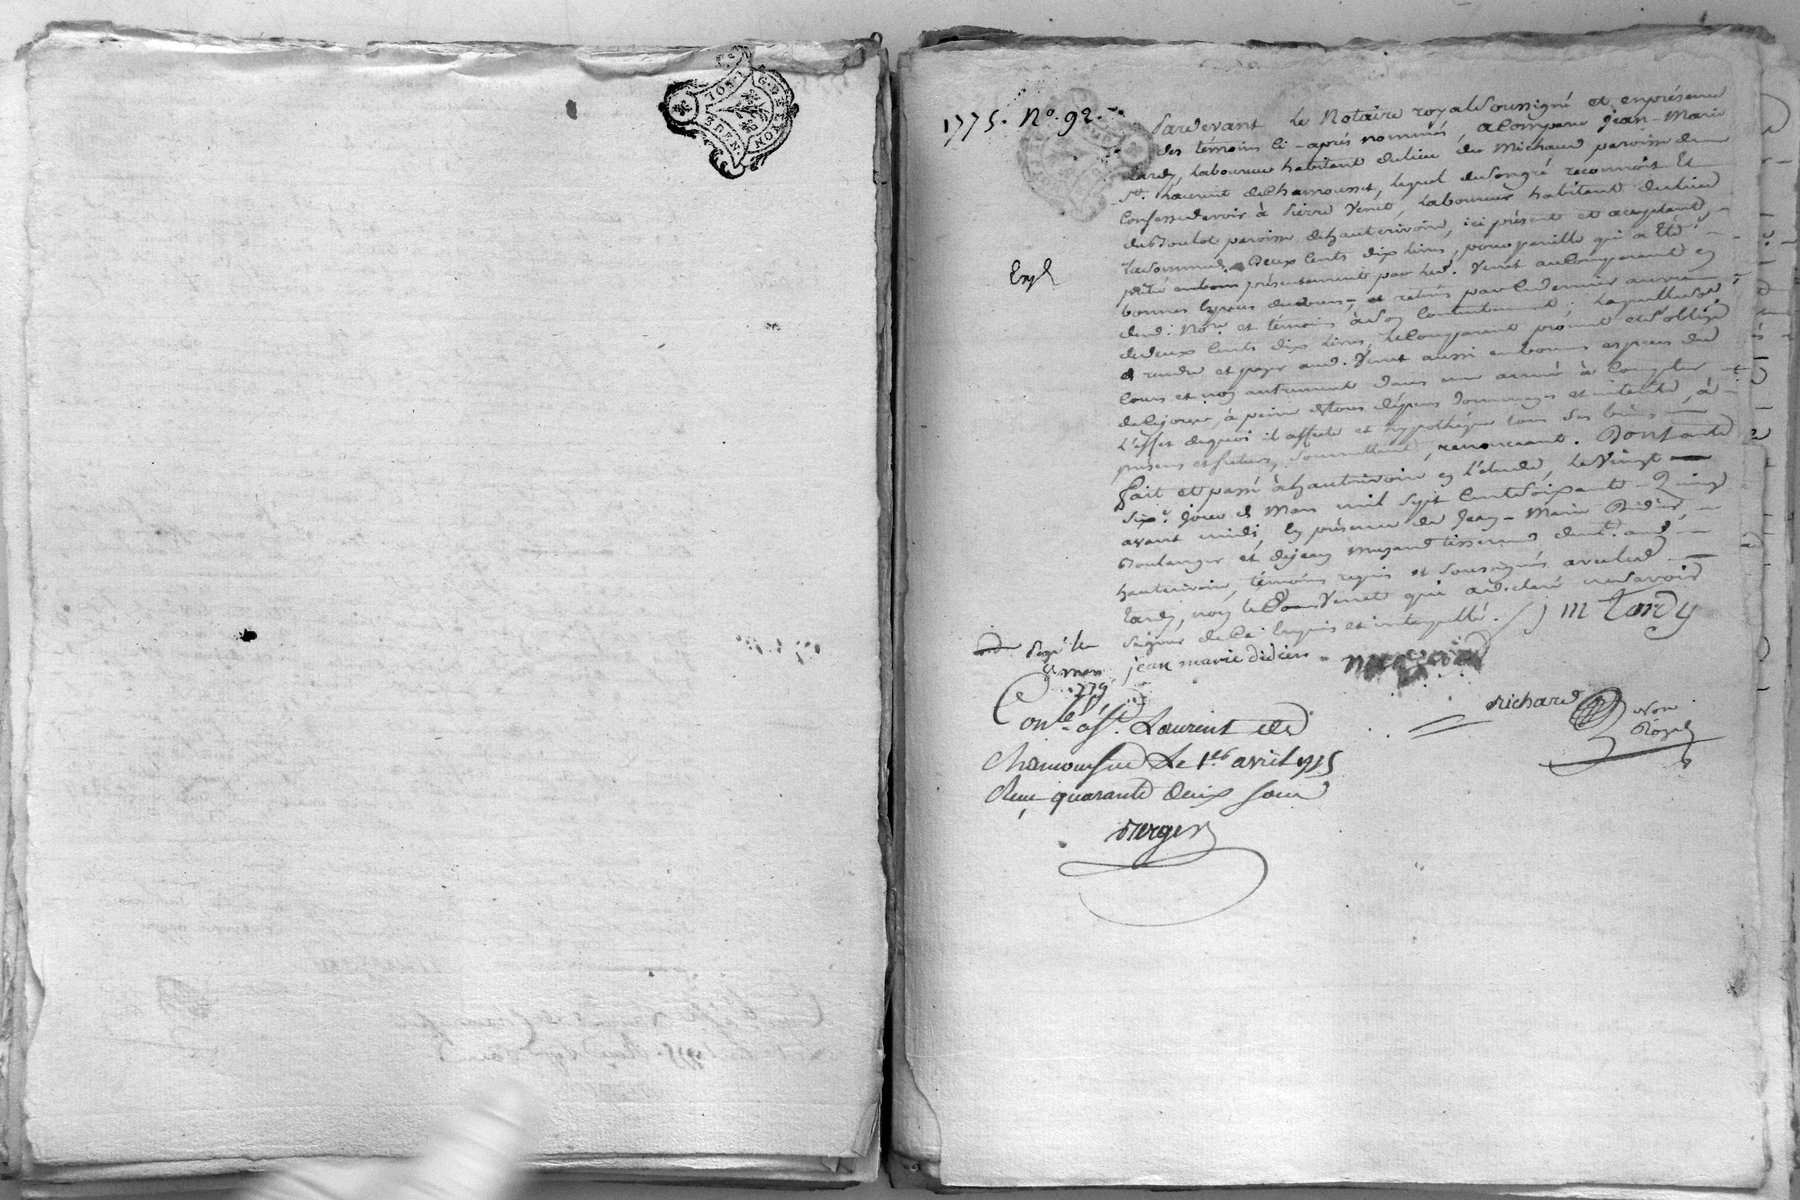 G. DE LYON
1775. No. 92.
Pardevant le Notaire royal soussigné et en présence
des témoins ci-après nommés, a comparu Jean-Marie
tardy, laboureur habitant du lieu du Michaud paroisse de
St. Laurent de Chamousset, lequel de son gré reconnoit et
confesse devoir à Pierre Venet, laboureur habitant du lieu
du Boulot paroisse d'hauterivoire, ici présent et acceptant,
la somme de Deux cents dix livres, pour pareille qui a été
prêté en bons présentement par led. Venet au Comparant en
bonnes espèces du cours, et retirés par ce dernier au vu
dud. Nore. et témoins à son contentement. laquelle somme
de deux cents dix livres, le Comparant promet et s'oblige
de rendre et payer aud. Venet aussi en bonnes espèces du
cours et non autrement dans une année à compter
de ce jour, à peine de tous dépens dommages et intérêts, à
l'effet de quoi il affecte et hypothèque tous ses biens
présens et futurs, soumettant, renonceant. Dont acte
fait et passé à hauterivoire en l'étude, le vingt
six.e jour de Mars mil sept cent soixante-Quinze
avant midi, en présence de Jean-Marie Didier,
Boulanger et de Jean mugand tisserand dud.
hauterivoire, témoins requis et soussignés avec led.
tardy, non led. Venet qui a déclaré ne savoir
signer de ce enquis et interpellé. J m tardy
jean marie didier
Richard Nore
Royal
Conlé. à St. Laurent de
Chamousset Le 1er avril 1775
Reçu quarante deux sous
Berger